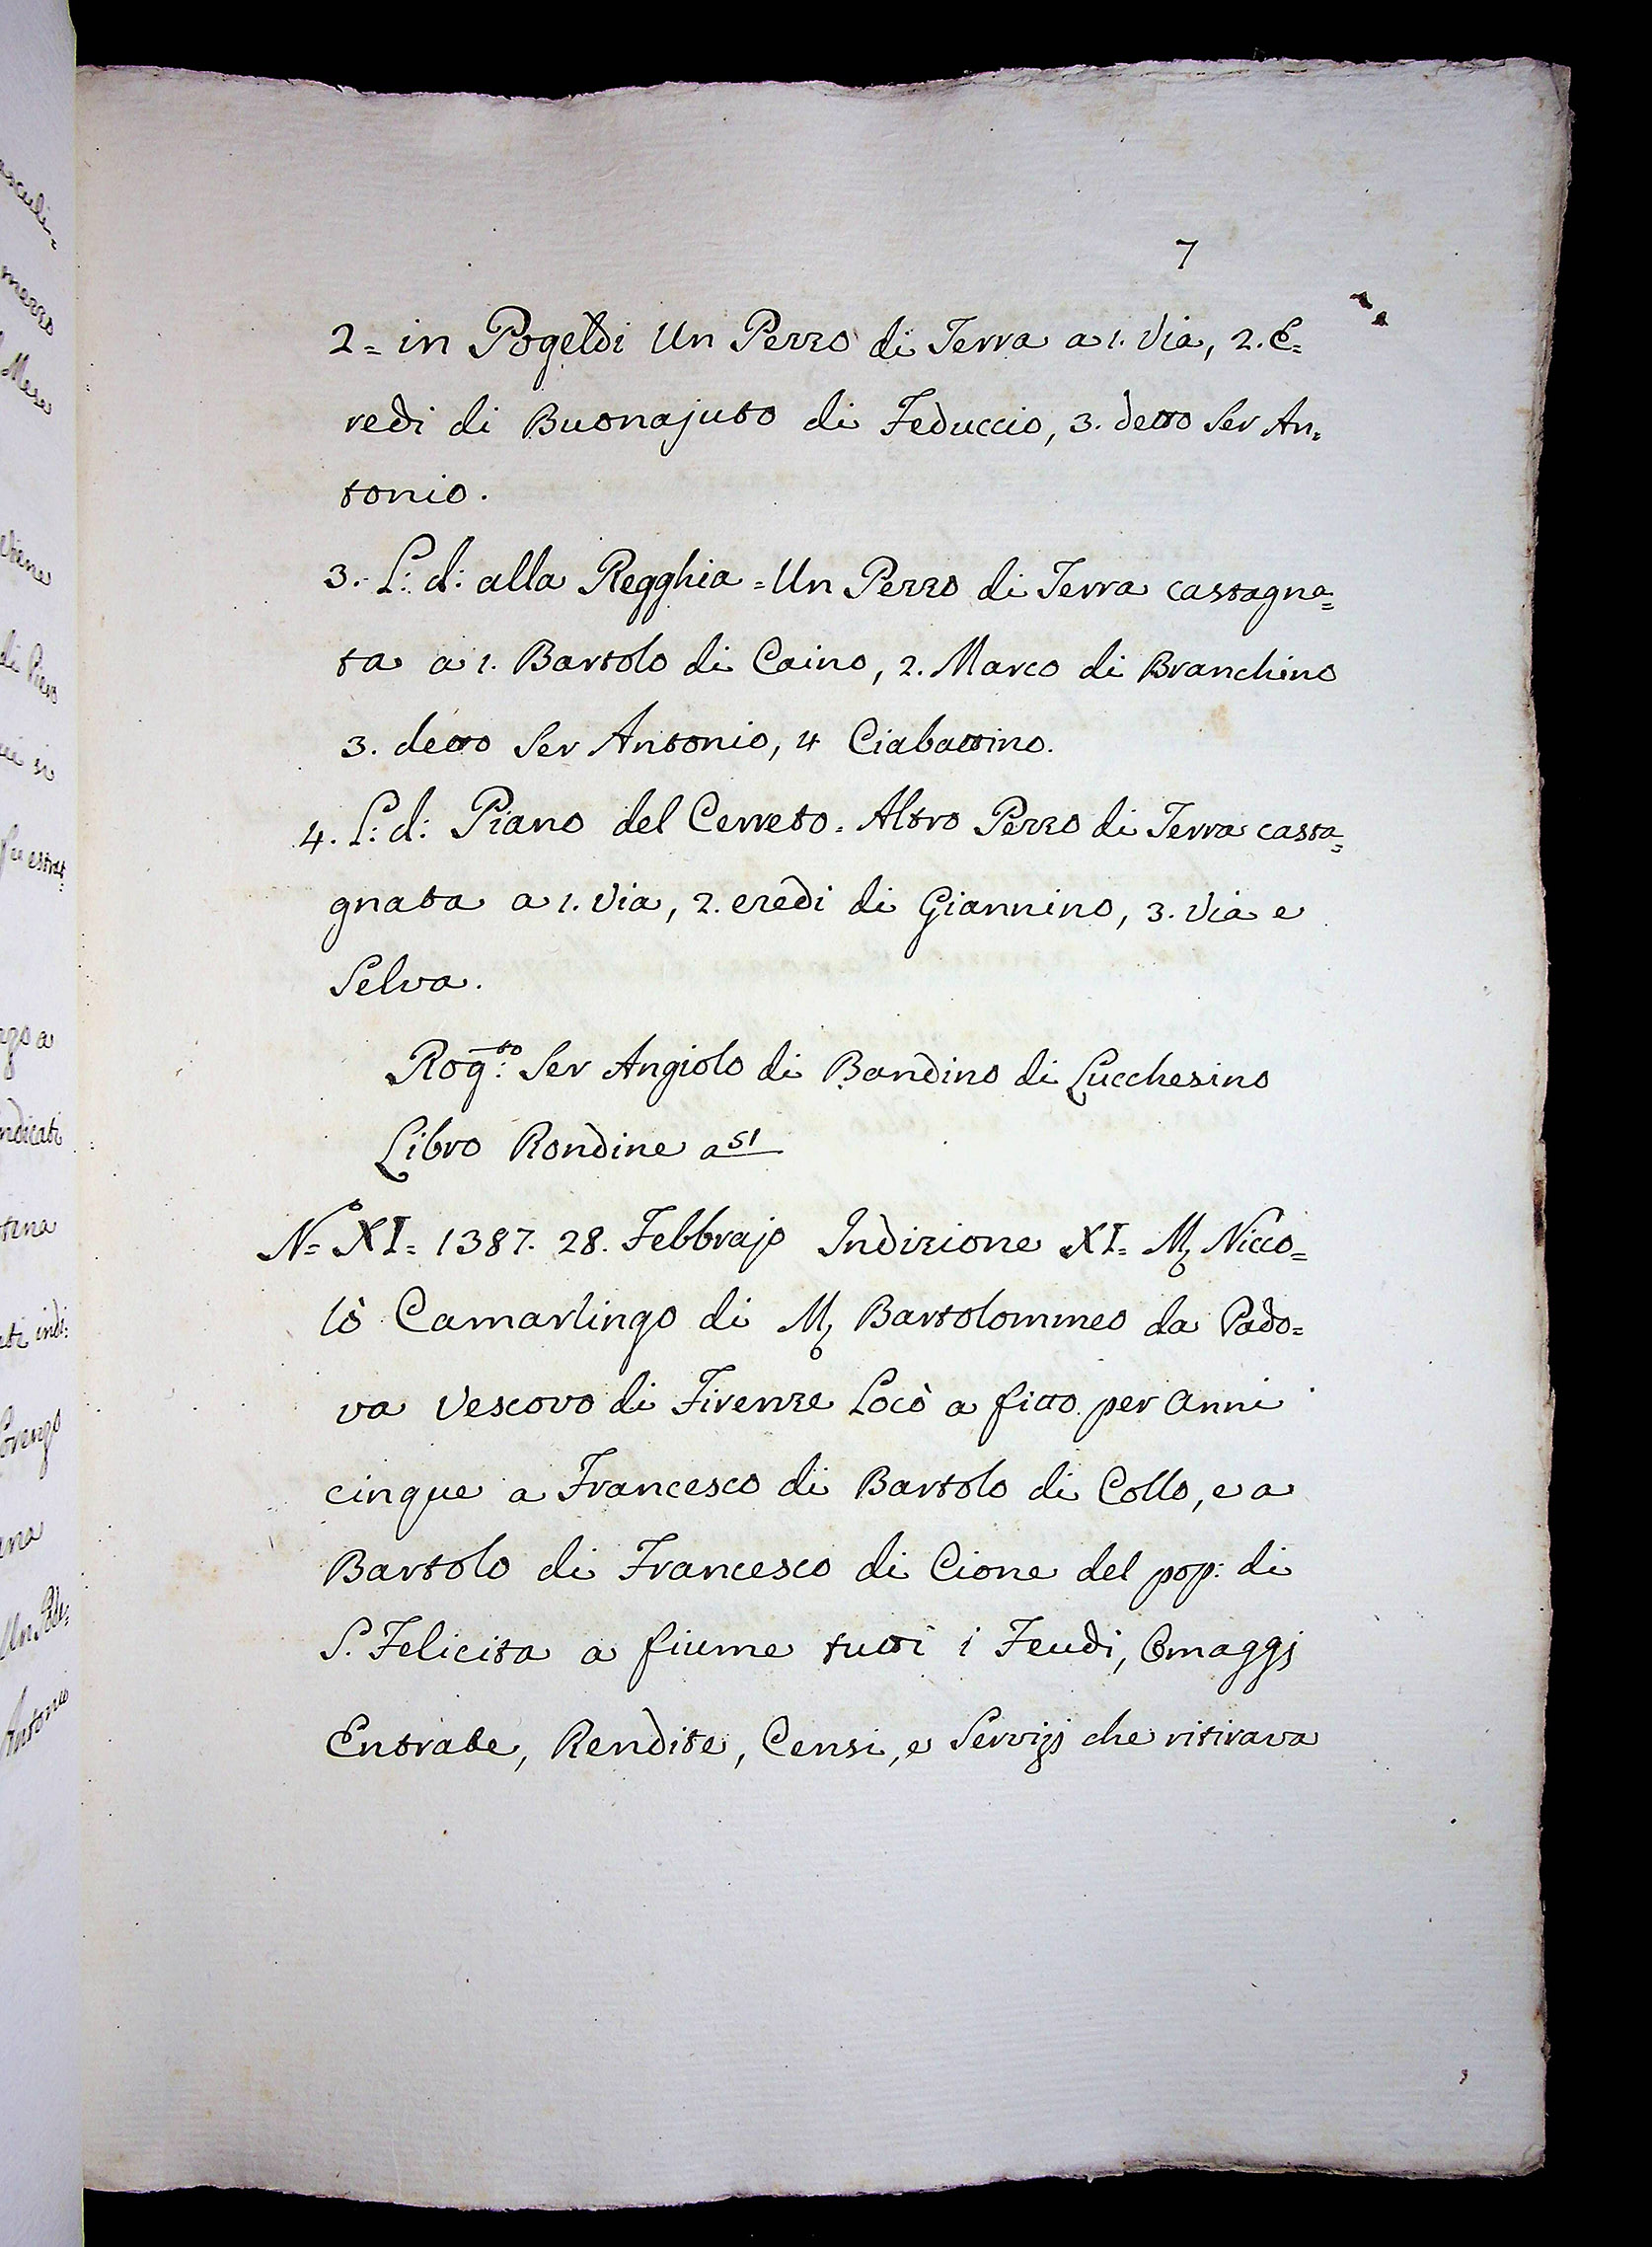 7
2= in Pogeldi Un Pezzo di Terra a 1. Via, 2. E=
redi di Buonajuto di Feduccio, 3. detto Ser An=
tonio.
3. L: d: alla Regghia = Un Pezzo di Terra castagna=
ta a 1. Bartolo di Caino, 2. Marco di Branchino
3. detto Ser Antonio, 4 Ciabattino.
4. L: d: Piano del Cerreto. Altro Pezzo di Terra casta=
gnata a 1. Via, 2. eredi di Giannino, 3. Via e
Selva.
Rog:to Ser Angiolo di Bandino di Lucchesino
Libro Rondine a 51
No= XI= 1387. 28. Febbrajo Indizione XI= M. Nicco=
lò Camarlingo di M. Bartolommeo da Pado=
va Vescovo di Firenze Locò a fitto per anni
cinque a Francesco di Bartolo di Collo, e a
Bartolo di Francesco di Cione del pop: di
S. Felicita a fiume tutti i Feudi, Omaggj
Entrate, Rendite, Censi, e Servizj che ritirava